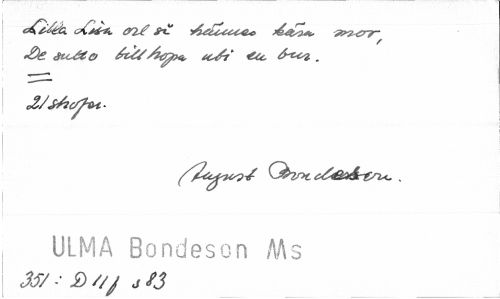 Lilla Lisa och så hännes kära mor,
De sutto tillhopa uti en bur.
21 strofer.
August Bondeson.
ULMA Bondeson Ms
351: D 11 f s 83